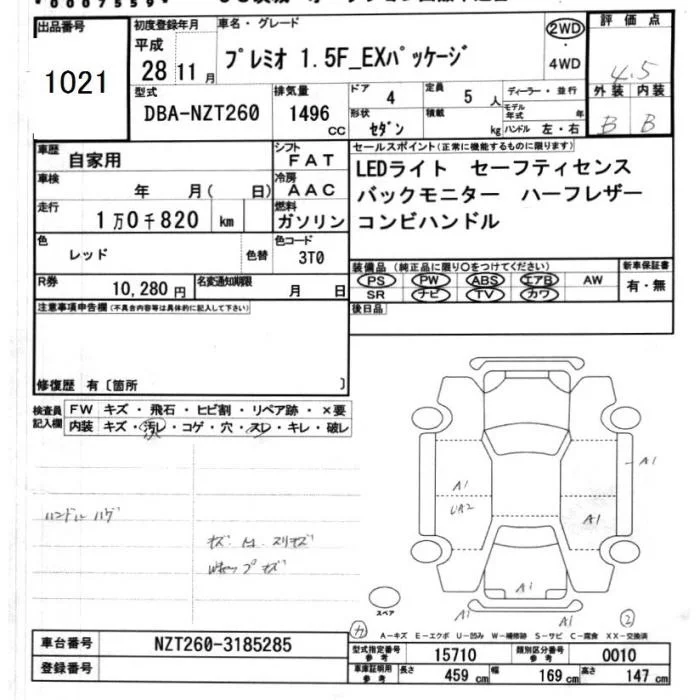 *0007559*
出品番号 初度登録年月 車名・グレード 評価点
1021 平成 28 11月 プレミオ 1.5F_EXパッケージ 2WD・4WD 4.5
型式 排気量 ドア 4 定員 5人 ディーラー・並行 外装 内装
DBA-NZT260 1496cc 形状 セダン 積載 kg モデル年式 年 ハンドル 左・右 B B
車歴 自家用 シフト FAT セールスポイント(正常に機能するものに限ります)
車検 年 月( 日) 冷房 AAC LEDライト セーフティセンス
走行 1万0千820km 燃料 ガソリン バックモニター ハーフレザー
コンビハンドル
色 レッド 色替 色コード 3T0
装備品(純正品に限り○をつけてください) 新車保証書
R券 10,280円 名変通知期限 月 日 PS PW ABS エアB AW 有・無
SR ナビ TV カワ
注意事項申告欄(不具合内容等は具体的に記入して下さい) 後日品
修復歴 有〔箇所 〕
検査員記入欄 FW キズ・飛石・ヒビ割・リペア跡・×要
内装 キズ・汚レ・コゲ・穴・スレ・キレ・破レ
A1 A1
ハンドル ハゲ UA2 A1
キズ
キズ
A1
スペア A1 A1
A-キズ E-エクボ U-凹み W-補修跡 S-サビ C-腐食 XX-交換済
車台番号 NZT260-3185285 型式指定番号 参考 15710 類別区分番号 参考 0010
登録番号 車庫証明用 参考 長さ 459cm 幅 169cm 高さ 147cm